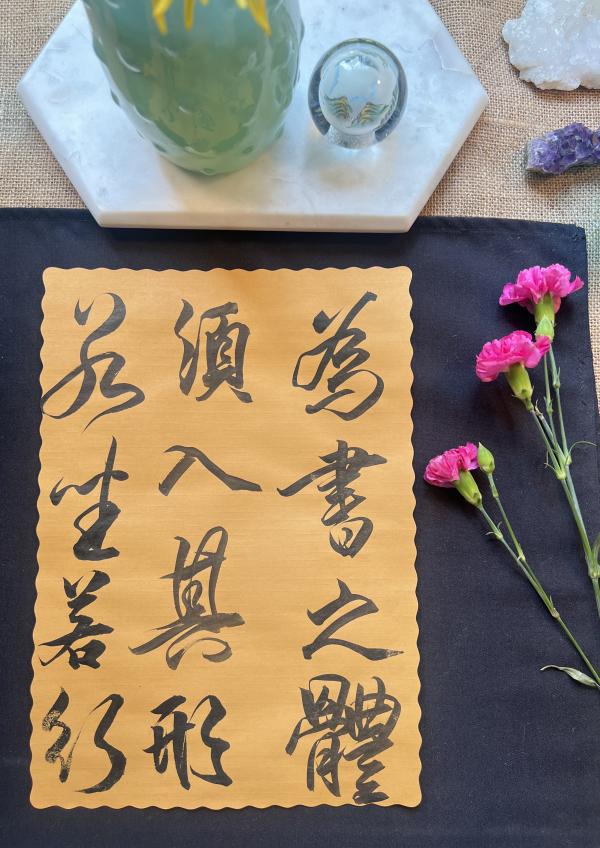 為書之體
須入其形
若坐若行